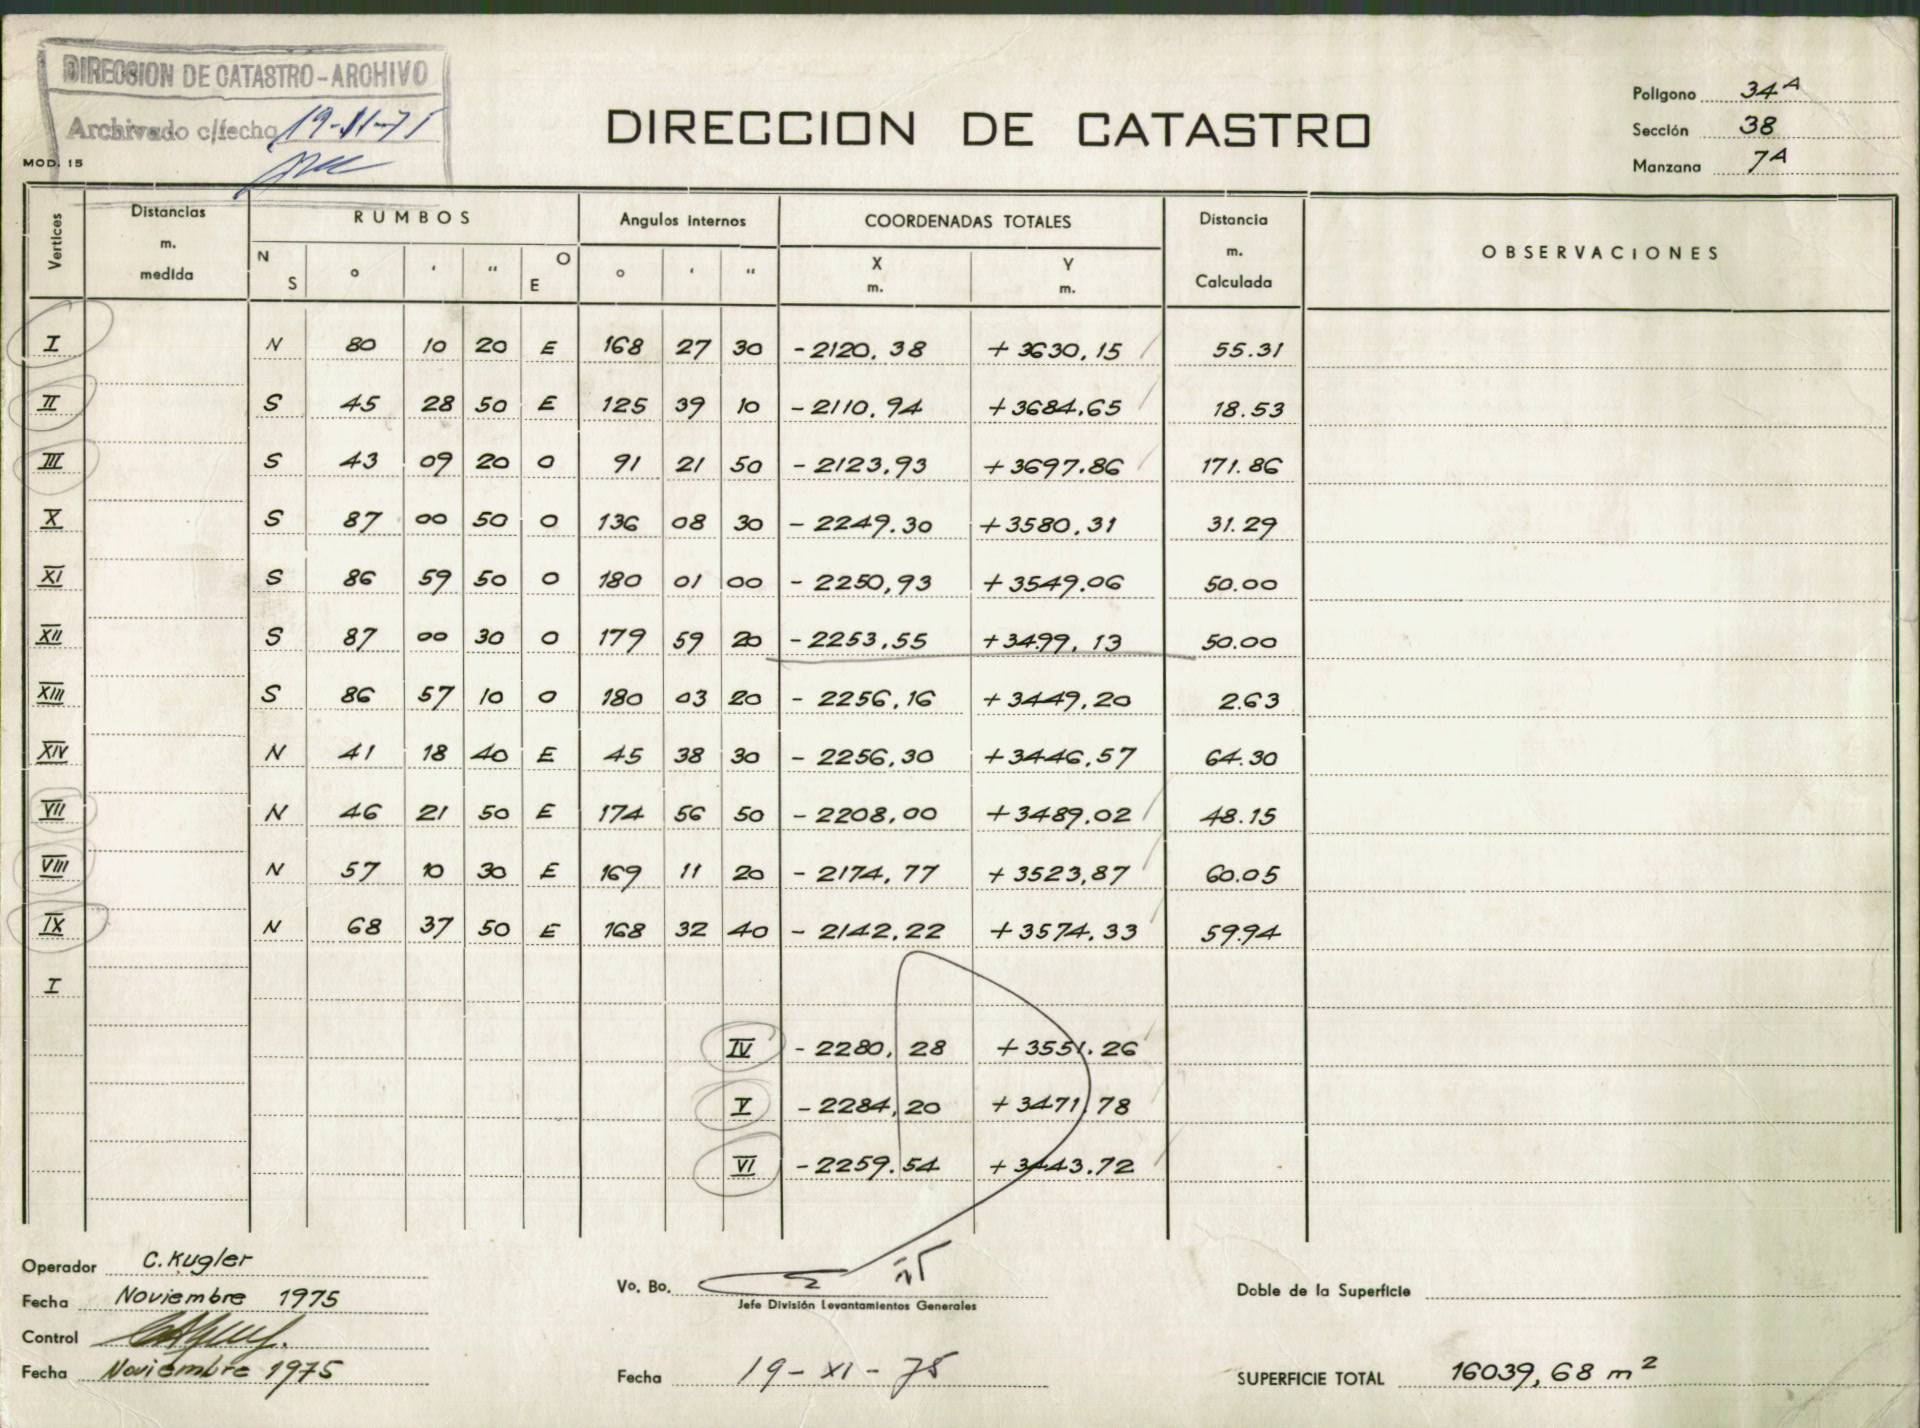 DIRECCION DE CATASTRO-ARCHIVO
Archivado c/fecha 19-XI-75
MOD. 15
DIRECCION DE CATASTRO
Polígono 34A
Sección 38
Manzana 7A
Vertices Distancias m. medida RUMBOS Angulos internos COORDENADAS TOTALES Distancia m. Calculada OBSERVACIONES
N S ° ' " O E ° ' " X m. Y m.
I N 80 10 20 E 168 27 30 -2120,38 +3630,15 55.31
II S 45 28 50 E 125 39 10 -2110,94 +3684,65 18.53
III S 43 09 20 O 91 21 50 -2123,93 +3697.86 171.86
X S 87 00 50 O 136 08 30 -2249.30 +3580,31 31.29
XI S 86 59 50 O 180 01 00 -2250,93 +3549,06 50.00
XII S 87 00 30 O 179 59 20 -2253,55 +3499,13 50.00
XIII S 86 57 10 O 180 03 20 -2256,16 +3449,20 2.63
XIV N 41 18 40 E 45 38 30 -2256,30 +3446,57 64.30
VII N 46 21 50 E 174 56 50 -2208,00 +3489.02 48.15
VIII N 57 10 30 E 169 11 20 -2174,77 +3523,87 60.05
IX N 68 37 50 E 168 32 40 -2142,22 +3574,33 59.94
I
IV -2280,28 +3551.26
V -2284,20 +3471,78
VI -2259.54 +3443.72
Operador C. Kugler
Fecha Noviembre 1975
Control
Fecha Noviembre 1975
Vo. Bo.
Jefe División Levantamientos Generales
Fecha 19-XI-75
Doble de la Superficie
SUPERFICIE TOTAL 16039,68 m2